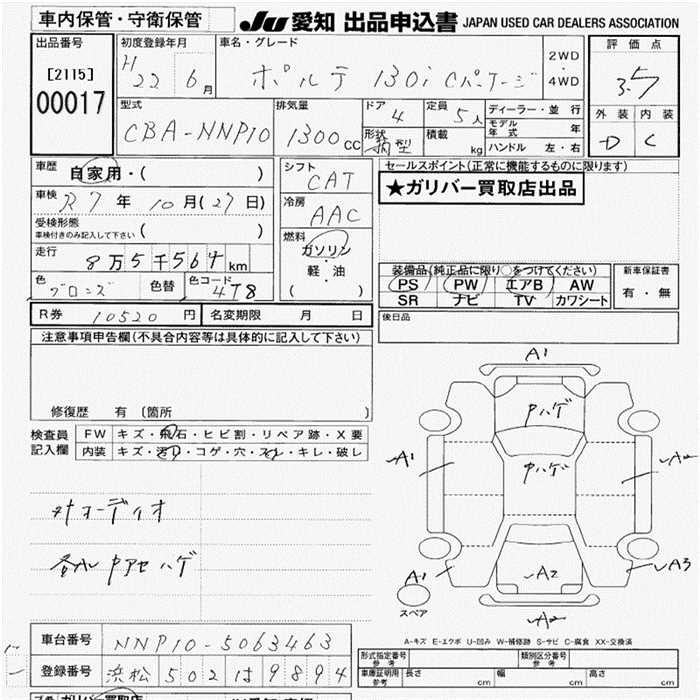 車内保管・守衛保管
JU 愛知 出品申込書 JAPAN USED CAR DEALERS ASSOCIATION
出品番号
[2115]
00017
初度登録年月
H 22 6月
車名・グレード
ポルテ 130i Cパッケージ
2WD
4WD
評価点
3.5
外装 内装
D C
型式
CBA-NNP10
排気量
1300cc
ドア
4
形状
箱型
定員
5人
積載
kg
ディーラー・並行
モデル年式 年
ハンドル 左・右
車歴
自家用・( )
車検
R7年10月(27日)
受検形態
車検付きのみ記入して下さい ( )
走行
8万5千564km
色
ブロンズ
色替
色コード
4T8
シフト
CAT
冷房
AAC
燃料
ガソリン
・
軽・油
( )
セールスポイント(正常に機能するものに限ります)
★ガリバー買取店出品
装備品(純正品に限り○をつけてください)
PS PW エアB AW
SR ナビ TV カワシート
新車保証書
有・無
R券 10520円
名変期限 月 日
後日品
注意事項申告欄(不具合内容等は具体的に記入して下さい)
修復歴 有 〔箇所 〕
検査員
記入欄
FW キズ・飛石・ヒビ割・リペア跡・X要
内装 キズ・汚れ・コゲ・穴・スレ・キレ・破レ
オーディオ
各AU中アセハゲ
A1
中ハゲ
中ハゲ
A1
A2
A1
A2
A3
A2
スペア
A-キズ E-エクボ U-凹み W-補修跡 S-サビ C-腐食 XX-交換済
車台番号
NNP10-5063463
登録番号
浜松 502 は 9894
形式指定番号
参考
類別区分番号
参考
車庫証明用
参考
長さ cm
幅 cm
高さ cm